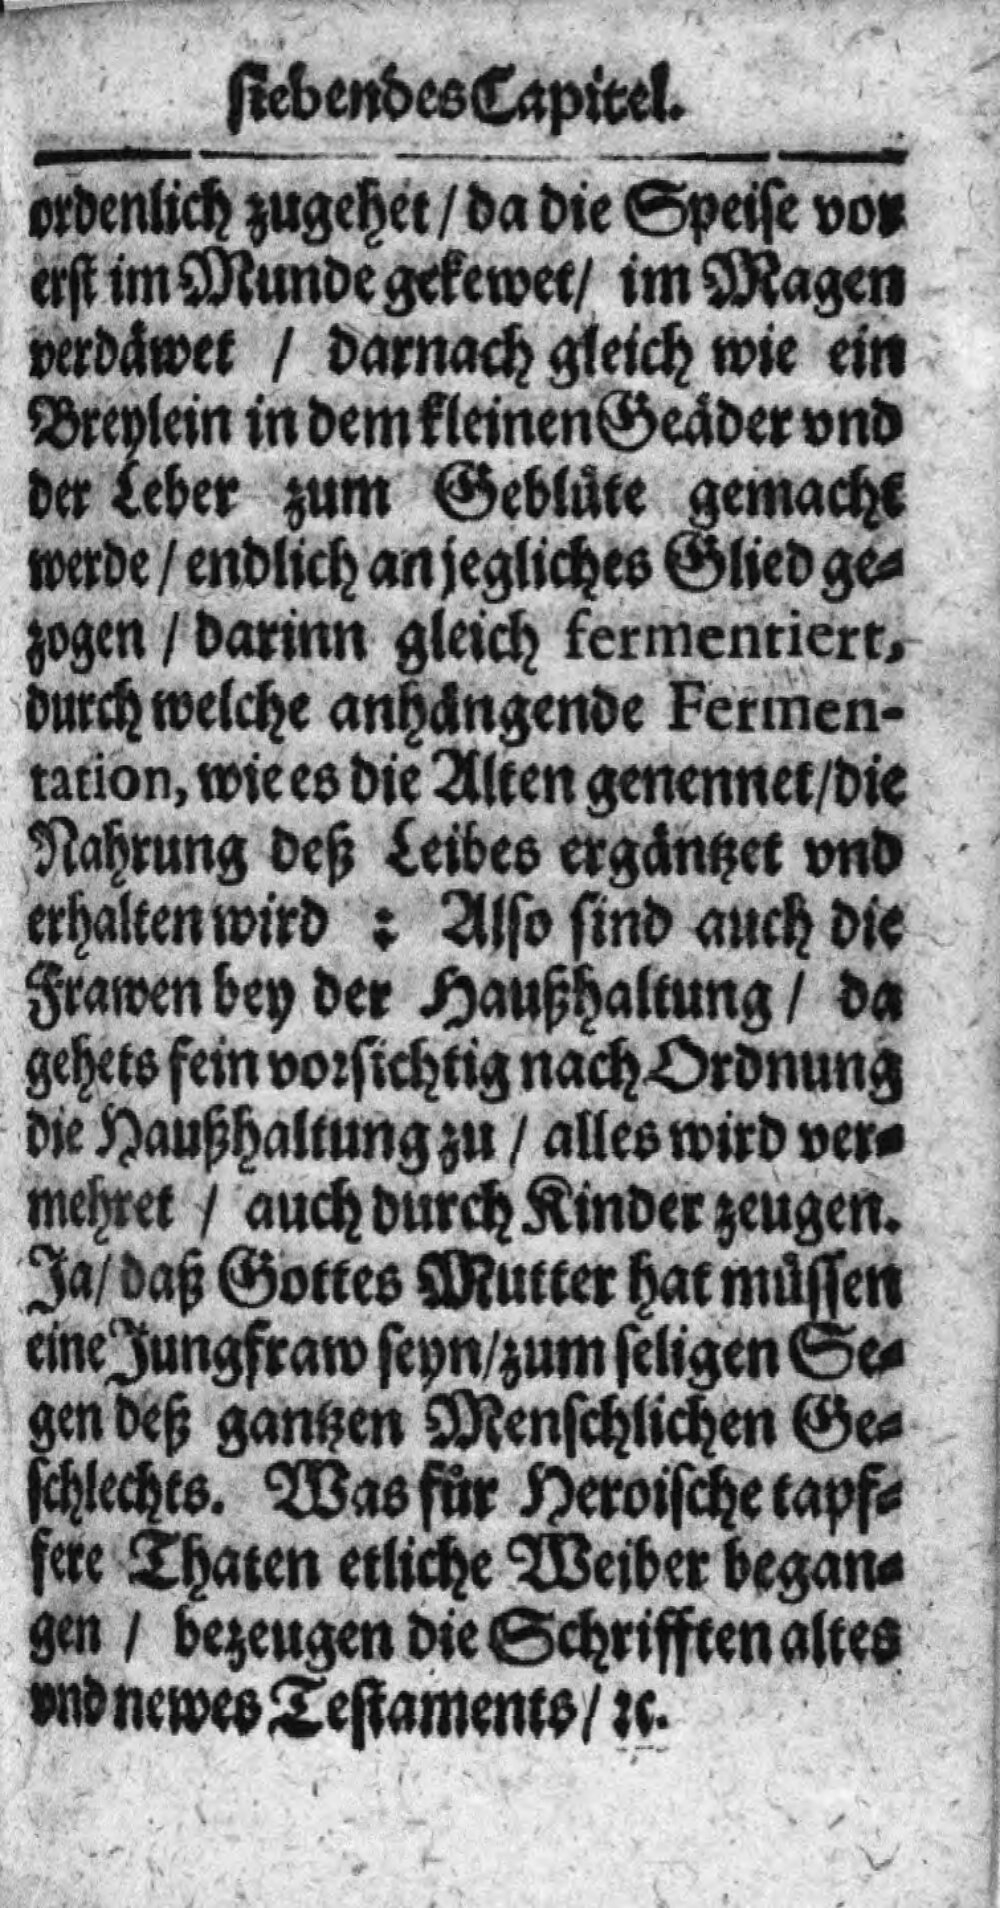 siebendes Capitel.
ordenlich zugehet / da die Speise vor
erst im Munde gekewet / im Magen
verdäwet / darnach gleich wie ein
Breylein in dem kleinen Geäder vnd
der Leber zum Geblüte gemacht
werde / endlich an jegliches Glied ge-
zogen / darinn gleich fermentiert,
durch welche anhängende Fermen-
tation, wie es die Alten genennet / die
Nahrung deß Leibes ergäntzet vnd
erhalten wird : Also sind auch die
Frawen bey der Haußhaltung / da
gehets fein vorsichtig nach Ordnung
die Haußhaltung zu / alles wird ver-
mehret / auch durch Kinder zeugen.
Ja / daß Gottes Mutter hat müssen
eine Jungfraw seyn / zum seligen Se-
gen deß gantzen Menschlichen Ge-
schlechts. Was für Heroische tapf-
fere Thaten etliche Weiber began-
gen / bezeugen die Schrifften altes
vnd newes Testaments / ꝛc.